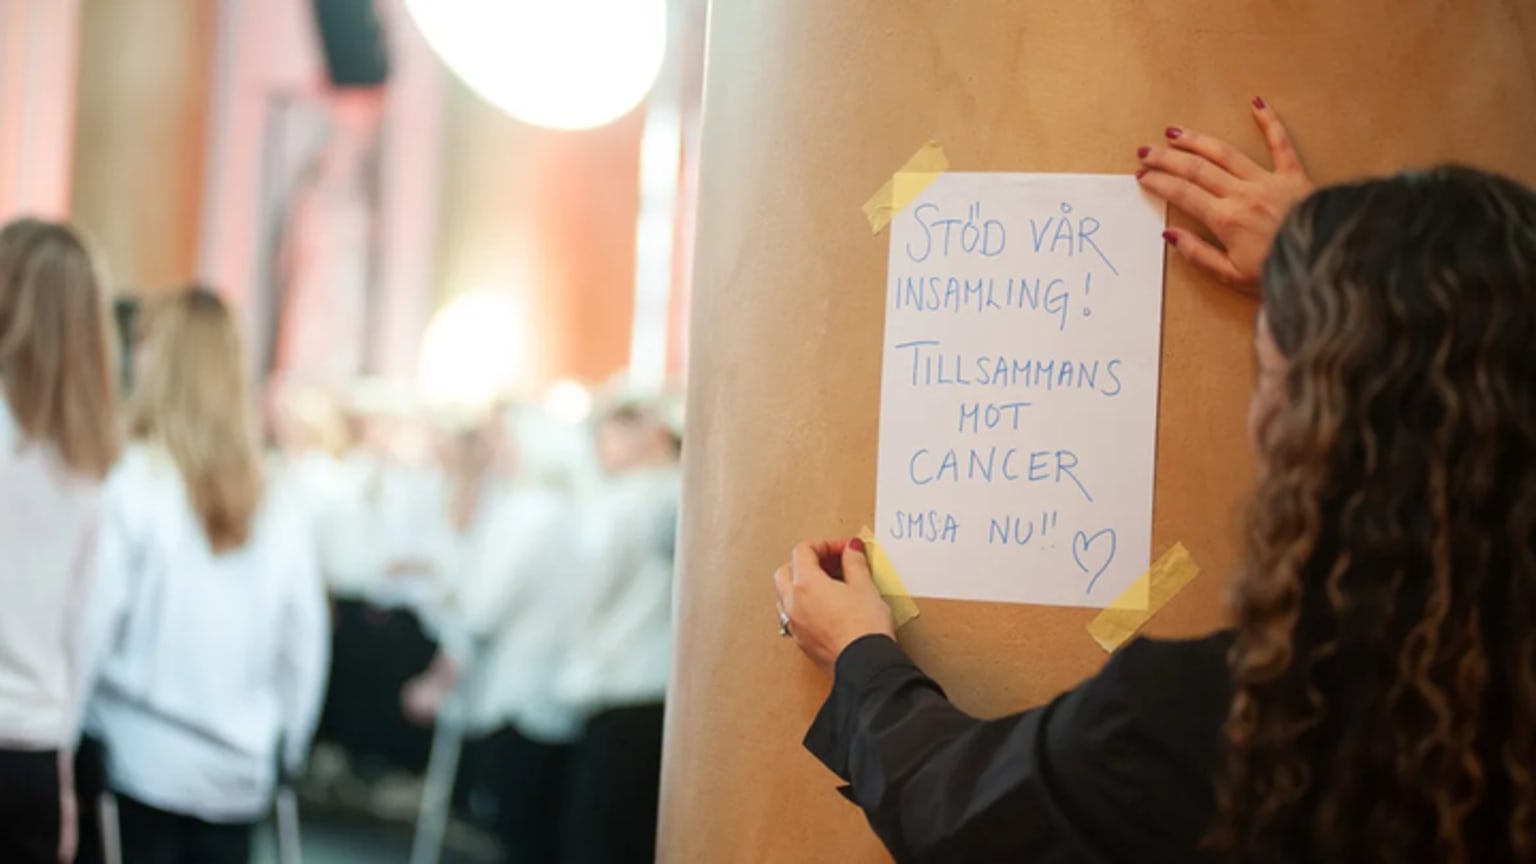 STÖD VÅR
INSAMLING!
TILLSAMMANS
MOT
CANCER
SMSA NU!!